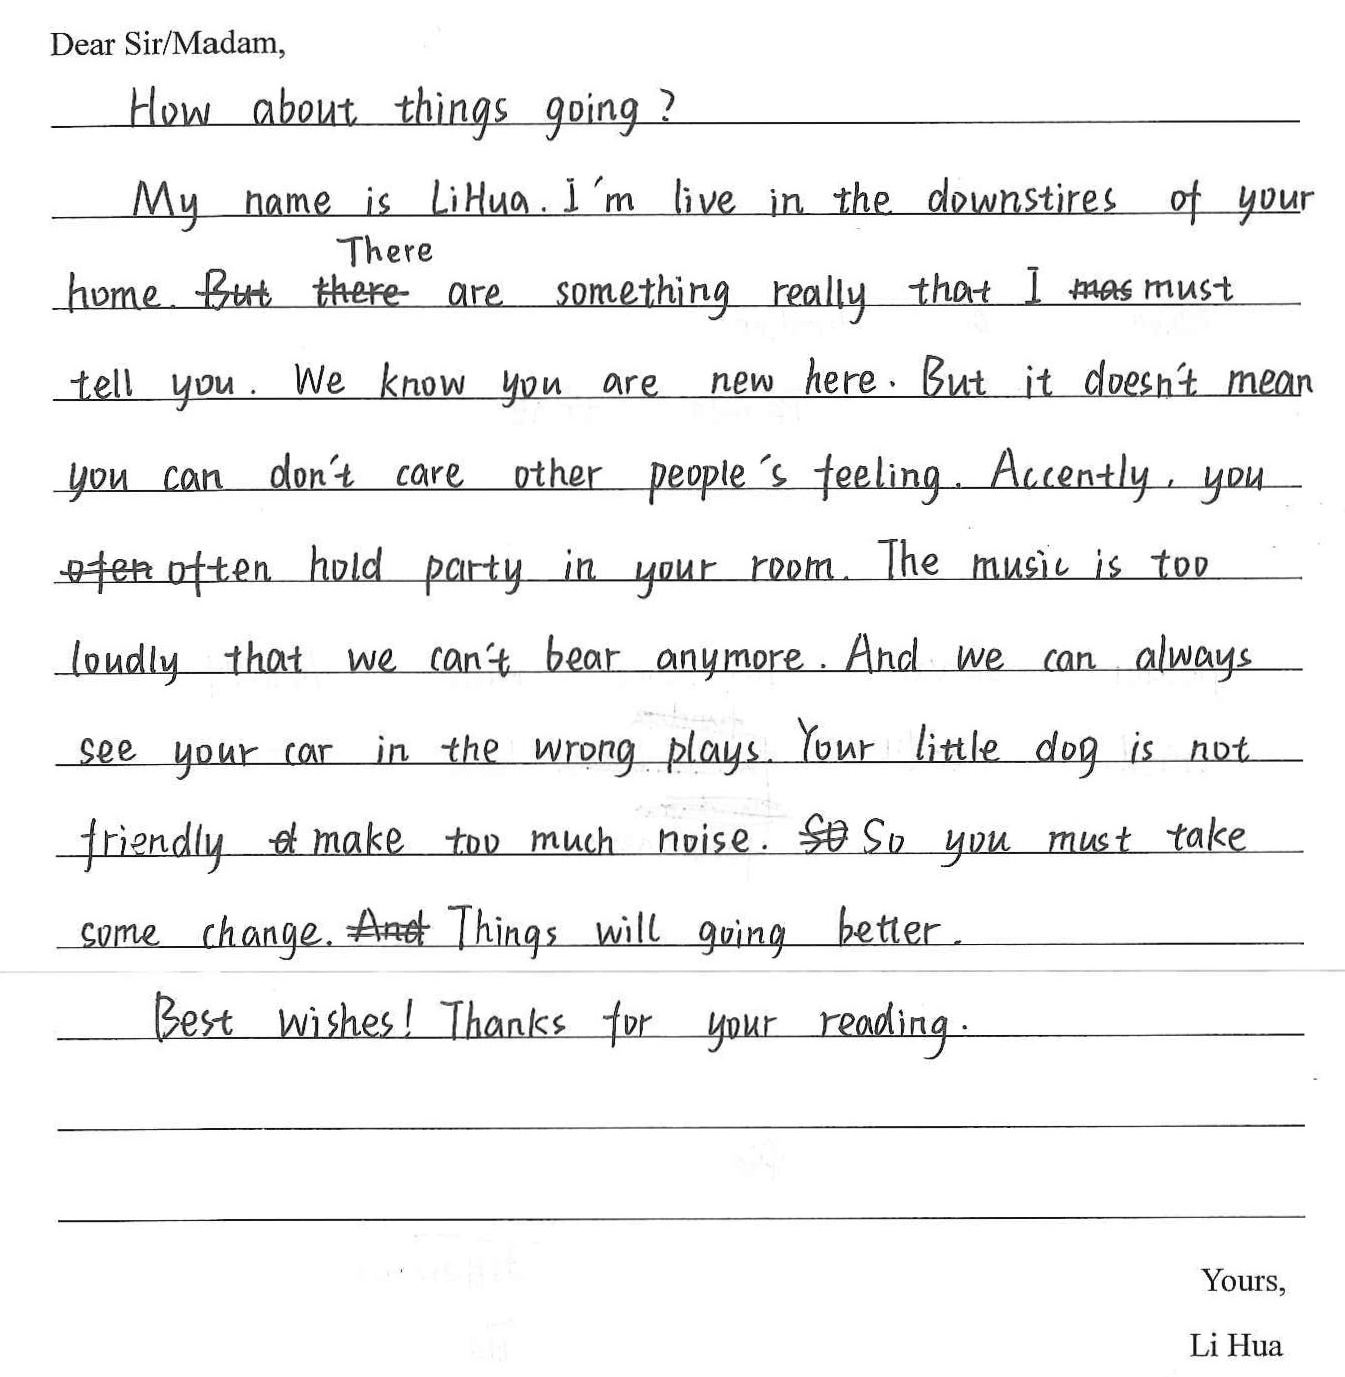 Dear Sir/Madam,
How about things going?
My name is LiHua. I'm live in the downstires of your
There
home. But there are something really that I mas must
tell you. We know you are new here. But it doesn't mean
you can don't care other people's feeling. Accently, you
ofen often hold party in your room. The music is too
loudly that we can't bear anymore. And we can always
see your car in the wrong plays. Your little dog is not
friendly make too much noise. So So you must take
some change. And Things will going better.
Best wishes! Thanks for your reading.
Yours,
Li Hua